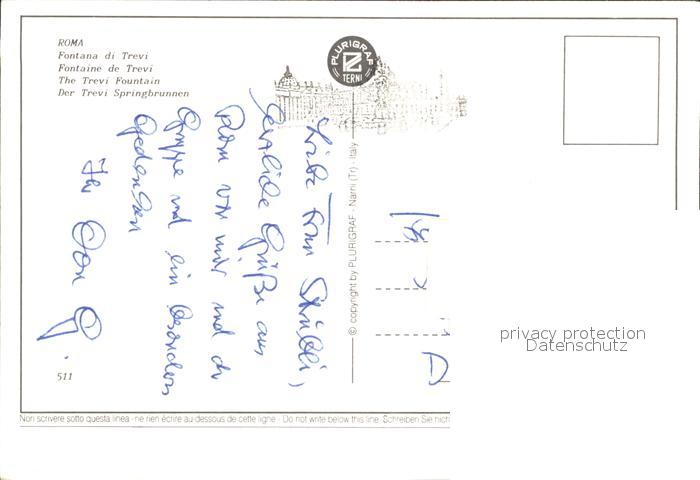 ROMA
Fontana di Trevi
Fontaine de Trevi
The Trevi Fountain
Der Trevi Springbrunnen
PLURIGRAF
TERNI
Liebe Frau
herzliche Grüße aus
Rom von mir und der
Gruppe und ein besonderes
Gedenken
Ihr
© copyright by PLURIGRAF - Narni (Tr) - Italy
privacy protection
Datenschutz
511
Non scrivere sotto questa linea - ne rien écrire au-dessous de cette ligne - Do not write below this line. Schreiben Sie nich